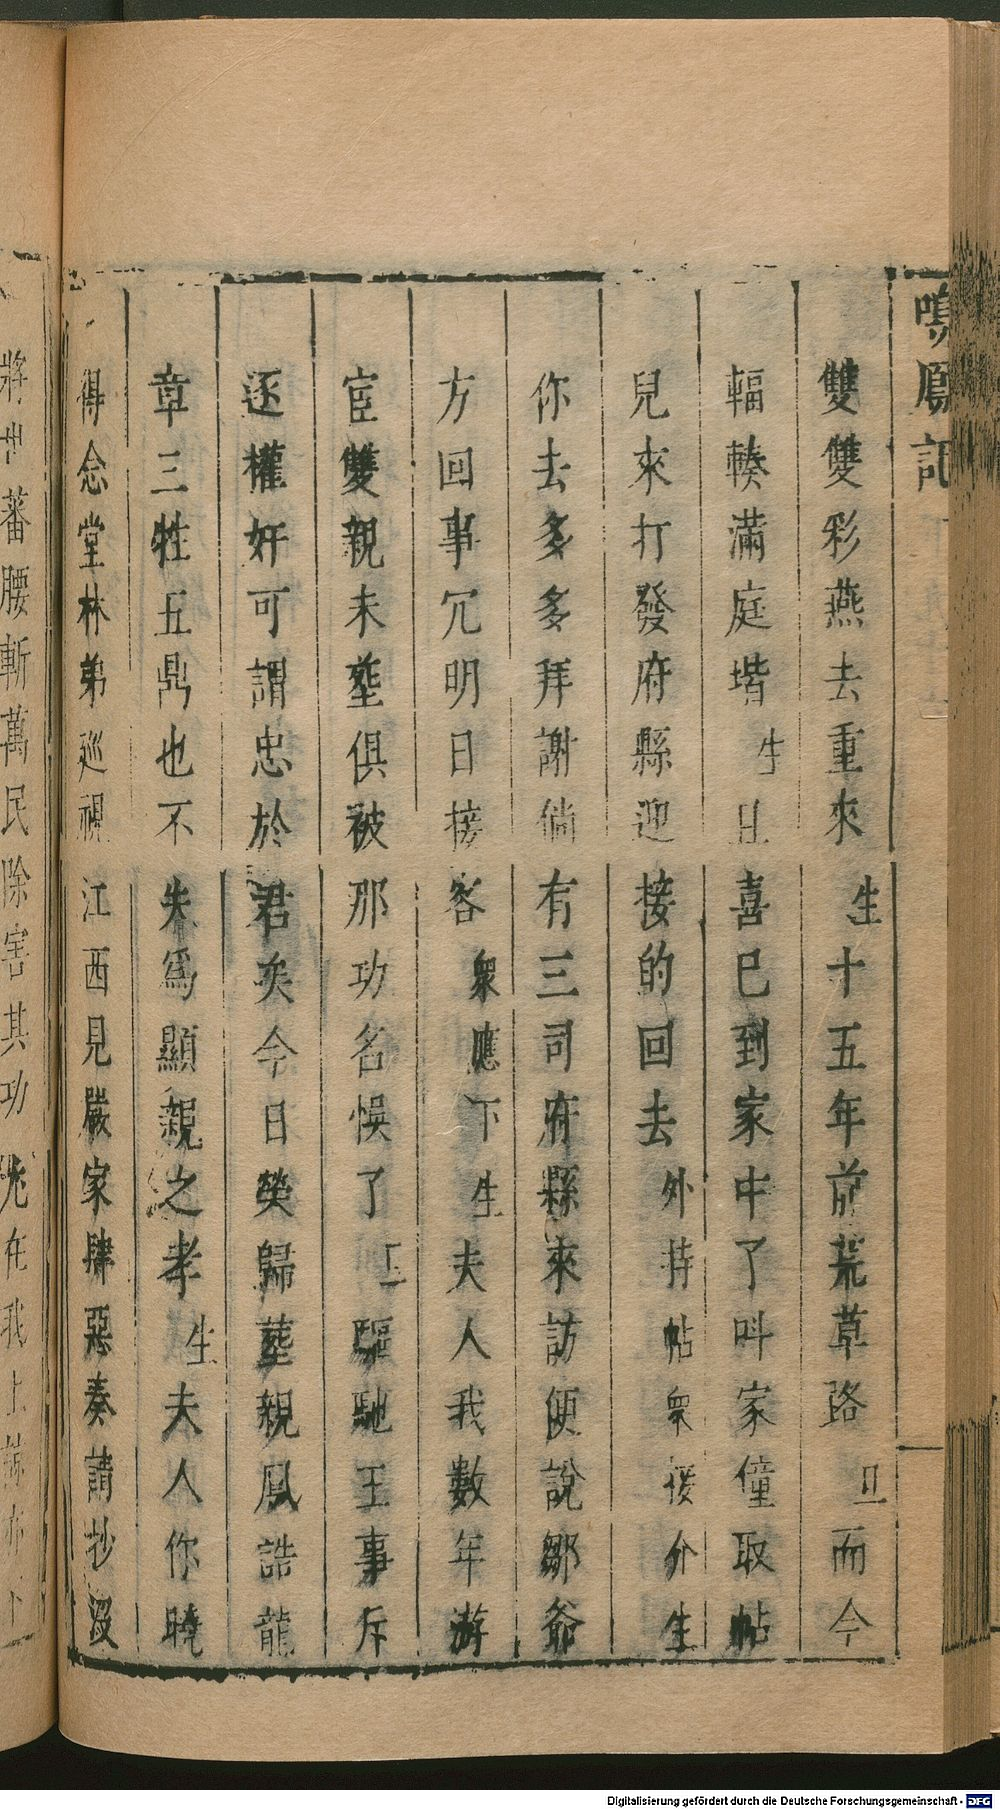 鳴鳳記
雙雙彩燕去重來生十五年前荒草路旦而今
輻輳滿庭堦生旦喜已到家中了叫家僮取帖
兒來打發府縣迎接的回去外持帖衆接介生
你去多多拜謝倘有三司府縣來訪便說鄒爺
方回事冗明日接客衆應下生夫人我數年游
宦雙親未塟俱被那功名悞了旦驅馳王事斥
逐權奸可謂忠於君矣今日榮歸塟親鳳誥龍
章三牲五鼎也不失爲顯親之孝生夫人你曉
得念堂林弟巡視江西見嚴家肆惡奏請抄沒
將世蕃腰斬萬民除害其功
Digitalisierung gefördert durch die Deutsche Forschungsgemeinschaft - DFG